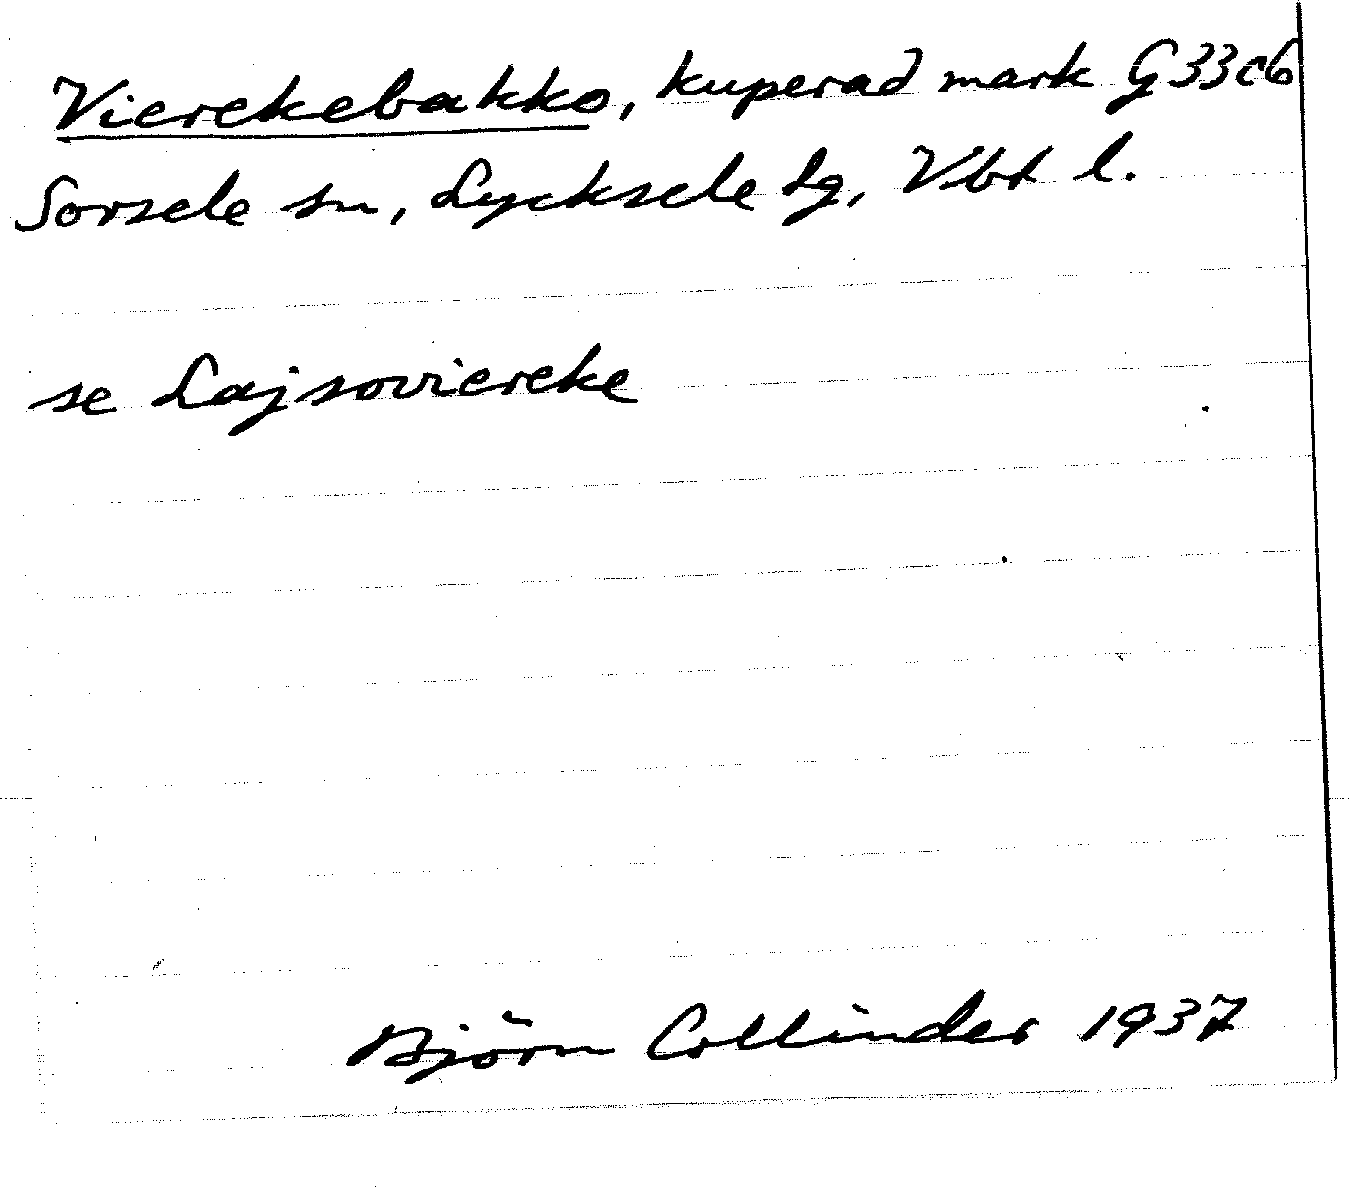 Vierekebakko, kuperad mark G33c6
Sorsele sn, Lycksele lg, Vbt l.
se Lajsoviereke
Björn Collinder 1937